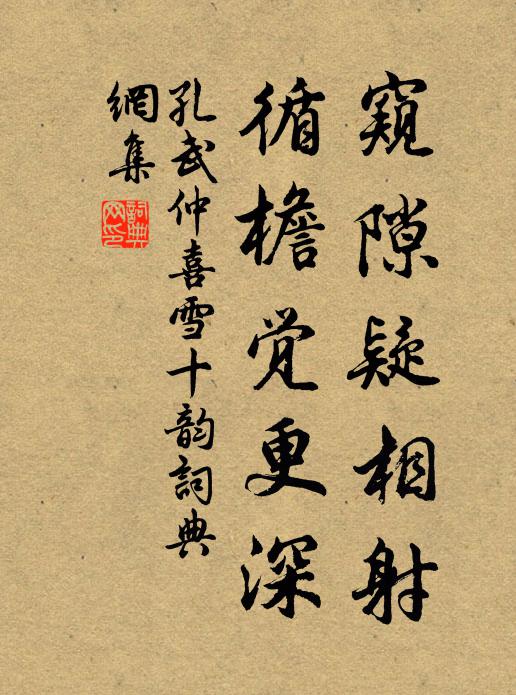 窺隙疑相射
循檐觉更深
孔武仲喜雪十韵詞典
網集
詞典
网印